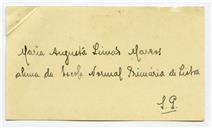 Maria Augusta Limas Marcos
aluna da Escola Normal Primária de Lisboa
S. P.